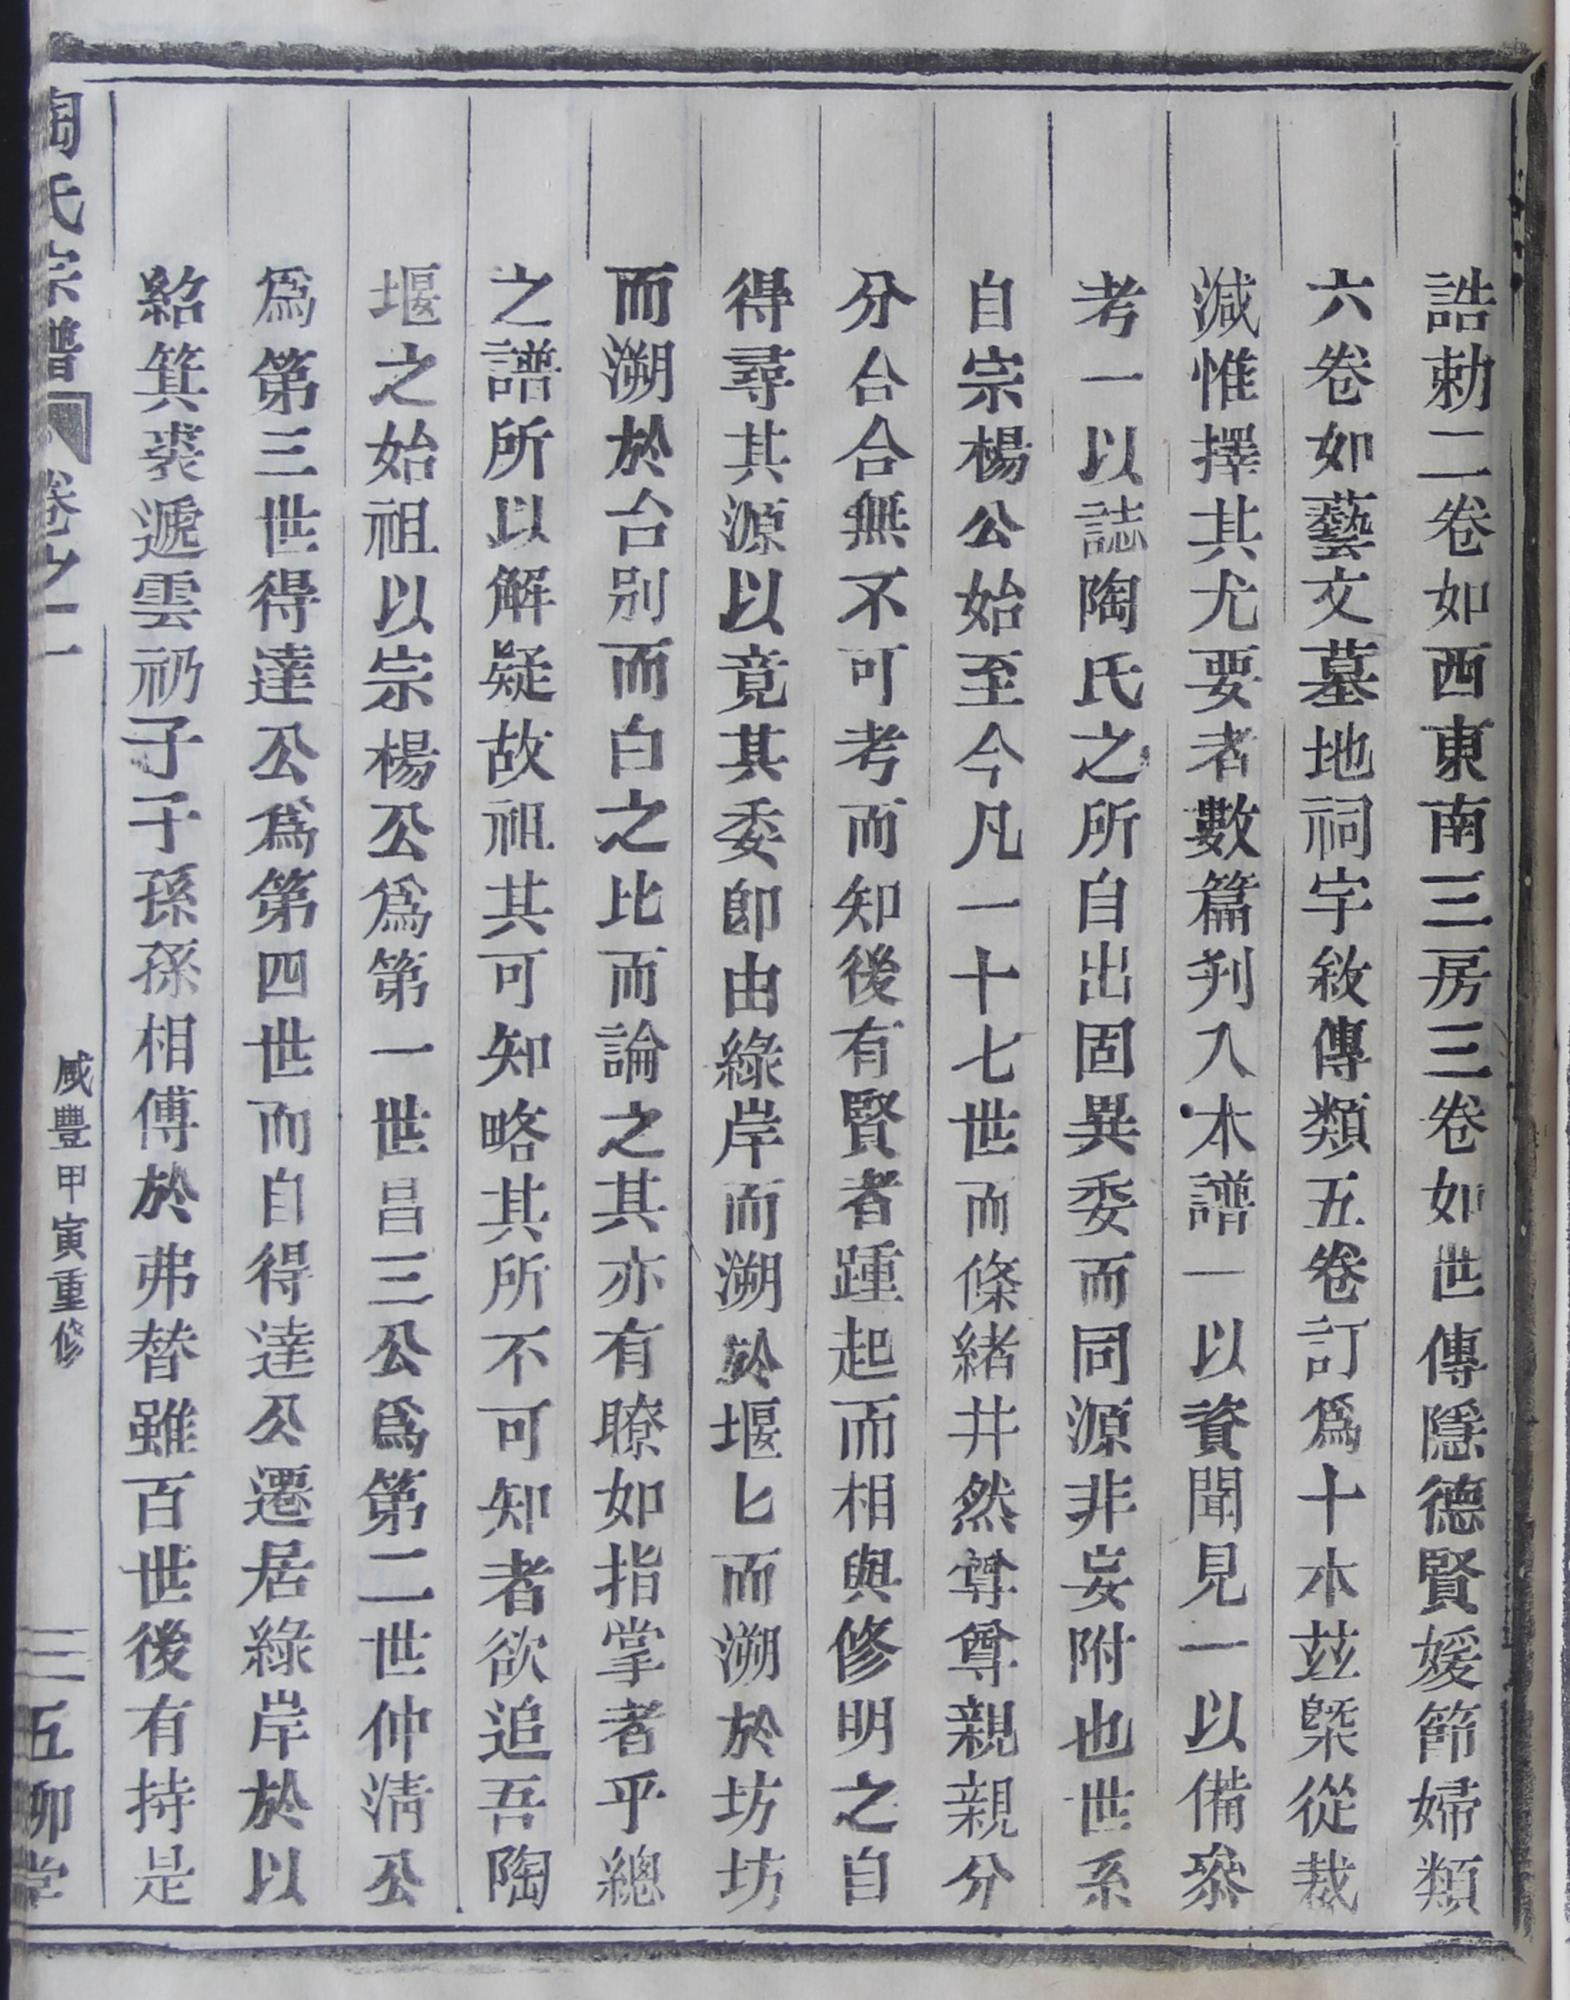 誥勅二卷如西東南三房三卷如世傳隱德賢媛節婦類
六卷如藝文墓地祠宇敘傳類五卷訂爲十本玆槩從裁
減惟擇其尤要者數篇刋入本譜一以資聞見一以備叅
考一以誌陶氏之所自出固異委而同源非妄附也世系
自宗楊公始至今凡一十七世而條緒井然尊尊親親分
分合合無不可考而知後有賢者踵起而相與修明之自
得尋其源以竟其委卽由綠岸而溯於堰匕而溯於坊坊
而溯於台別而白之比而論之其亦有瞭如指掌者乎總
之譜所以解疑故祖其可知略其所不可知者欲追吾陶
堰之始祖以宗楊公爲第一世昌三公爲第二世仲淸公
爲第三世得達公爲第四世而自得達公遷居綠岸於以
紹箕裘遞雲礽子子孫孫相傳於弗替雖百世後有持是
陶氏宗譜 卷之一 咸豐甲寅重修 三 五柳堂